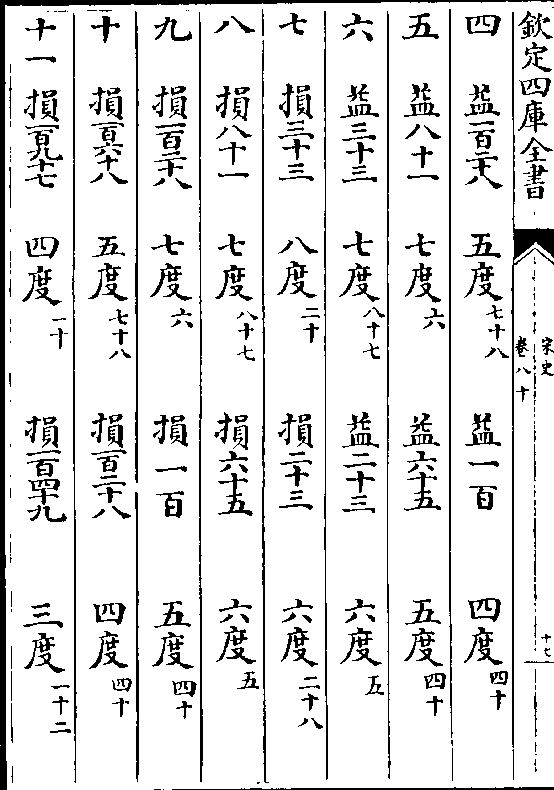 欽定四庫全書
宋史
卷八十
十七
四 益一百二十八 五度七十八 益一百 四度四十
五 益八十一 七度六 益六十五 五度四十
六 益三十三 七度八十七 益二十三 六度五
七 損三十三 八度二十 損二十三 六度二十八
八 損八十一 七度八十七 損六十五 六度五
九 損一百二十八 七度六 損一百 五度四十
十 損一百六十八 五度七十八 損一百二十八 四度四十
十一 損一百九十七 四度一十 損一百四十九 三度一十二